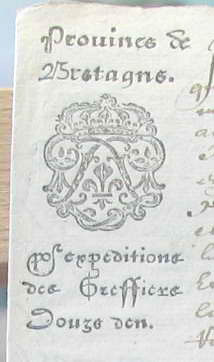 Prouince de
Bretagne.
po^r expeditions
des Greffiers
Douze den.